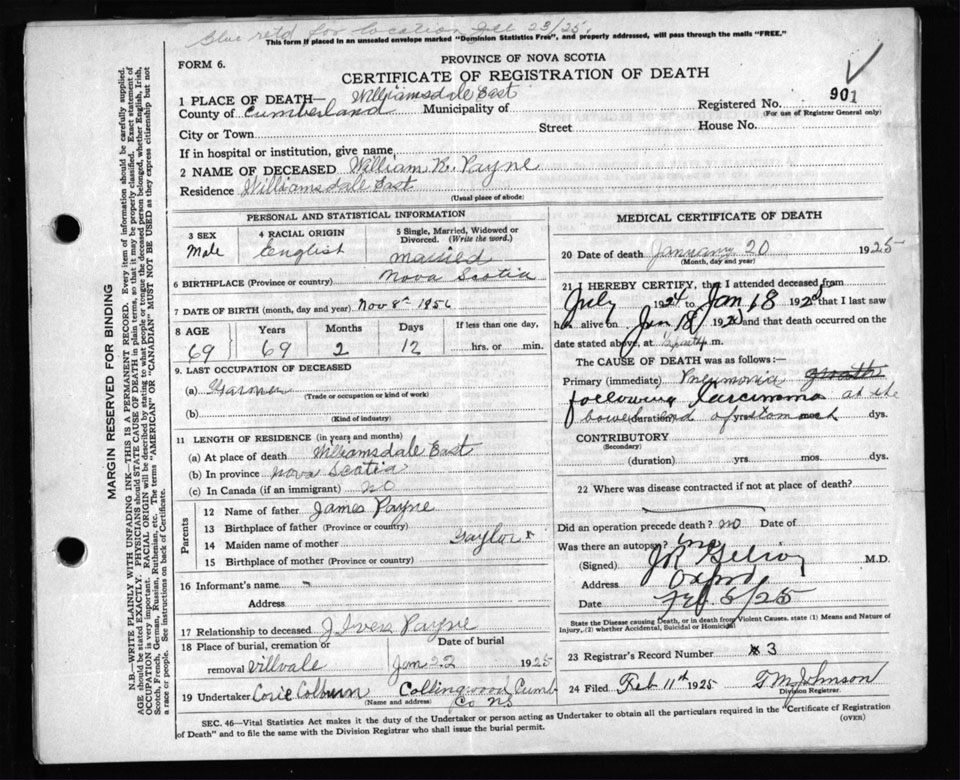 Blue ret'd for location Feb 23/25
This form if placed in an unsealed envelope marked "Dominion Statistics Free", and properly addressed, will pass through the mails "FREE."
FORM 6.
PROVINCE OF NOVA SCOTIA
CERTIFICATE OF REGISTRATION OF DEATH
1 PLACE OF DEATH— Williamsdale East
County of Cumberland Municipality of
Registered No. 901
(For use of Registrar General only)
City or Town Street House No.
If in hospital or institution, give name
2 NAME OF DECEASED William R. Payne
Residence Williamsdale East
(Usual place of abode)
PERSONAL AND STATISTICAL INFORMATION
3 SEX 4 RACIAL ORIGIN 5 Single, Married, Widowed or Divorced. (Write the word.)
Male English Married
6 BIRTHPLACE (Province or country) Nova Scotia
7 DATE OF BIRTH (month, day and year) Nov 8th 1956
8 AGE Years Months Days If less than one day,
69 69 2 12 hrs. or min.
9. LAST OCCUPATION OF DECEASED
(a) Farmer
(Trade or occupation or kind of work)
(b)
(Kind of industry)
11 LENGTH OF RESIDENCE (in years and months)
(a) At place of death Williamsdale East
(b) In province Nova Scotia
(c) In Canada (if an immigrant) no
Parents
12 Name of father James Payne
13 Birthplace of father (Province or country)
14 Maiden name of mother Taylor
15 Birthplace of mother (Province or country)
16 Informant's name
Address
17 Relationship to deceased J Ivers Payne
18 Place of burial, cremation or Date of burial
removal Villvale Jan 22 1925
19 Undertaker Colburn Collingwood Cumb
Co NS
(Name and address)
MEDICAL CERTIFICATE OF DEATH
20 Date of death January 20 1925
(Month, day and year)
21 I HEREBY CERTIFY, that I attended deceased from
July 1924 to Jan 18 192 that I last saw
h alive on Jan 18 192 and that death occurred on the
date stated above, at m.
The CAUSE OF DEATH was as follows:—
Primary (immediate) Pneumonia
following Carcinoma of the
bowel and of stomach (duration) yrs. mos. dys.
CONTRIBUTORY
(Secondary)
(duration) yrs. mos. dys.
22 Where was disease contracted if not at place of death?
Did an operation precede death? no Date of
Was there an autopsy? no
(Signed) M.D.
Address Oxford
Date Feb 5/25
State the Disease causing Death, or in death from Violent Causes, state (1) Means and Nature of
Injury, (2) whether Accidental, Suicidal or Homicidal
23 Registrar's Record Number 3
24 Filed Feb 11th 1925 T M Johnson
Division Registrar.
SEC. 46—Vital Statistics Act makes it the duty of the Undertaker or person acting as Undertaker to obtain all the particulars required in the "Certificate of Registration
of Death" and to file the same with the Division Registrar who shall issue the burial permit.
(OVER)
MARGIN RESERVED FOR BINDING
N.B.—WRITE PLAINLY WITH UNFADING INK—THIS IS A PERMANENT RECORD. Every item of information should be carefully supplied.
AGE should be stated EXACTLY. PHYSICIANS should STATE CAUSE OF DEATH in plain terms, so that it may be properly classified. Exact statement of
OCCUPATION is very important. RACIAL ORIGIN will be described by stating to what people or tongue the deceased person belonged, whether English, Irish,
Scotch, French, German, Russian, Ruthenian, etc. The terms "AMERICAN" or "CANADIAN" MUST NOT BE USED as they express citizenship but not
a race or people. See instructions on back of Certificate.